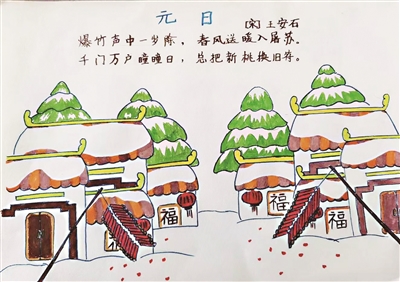 元日
[宋]王安石
爆竹声中一岁除，春风送暖入屠苏。
千门万户曈曈日，总把新桃换旧符。
福
福
福
福